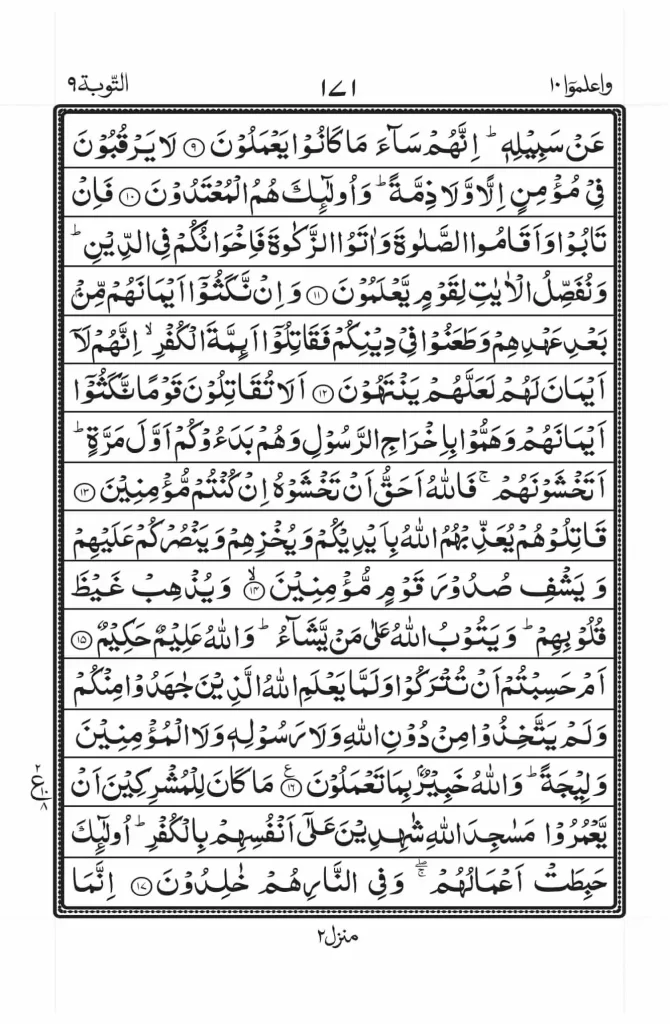 التّوبة ٩
١٧١
واعلموٓا ١٠
عَنْ سَبِيْلِهٖ ؕ اِنَّهُمْ سَآءَ مَا كَانُوْا يَعْمَلُوْنَ ۝۹ لَا يَرْقُبُوْنَ
فِيْ مُؤْمِنٍ اِلًّا وَّلَا ذِمَّةً ؕ وَاُولٰٓئِكَ هُمُ الْمُعْتَدُوْنَ ۝۱۰ فَاِنْ
تَابُوْا وَاَقَامُوا الصَّلٰوةَ وَاٰتَوُا الزَّكٰوةَ فَاِخْوَانُكُمْ فِي الدِّيْنِ ؕ
وَنُفَصِّلُ الْاٰيٰتِ لِقَوْمٍ يَّعْلَمُوْنَ ۝۱۱ وَاِنْ نَّكَثُوْۤا اَيْمَانَهُمْ مِّنْۢ
بَعْدِ عَهْدِهِمْ وَطَعَنُوْا فِيْ دِيْنِكُمْ فَقَاتِلُوْۤا اَئِمَّةَ الْكُفْرِ ۙ اِنَّهُمْ لَاۤ
اَيْمَانَ لَهُمْ لَعَلَّهُمْ يَنْتَهُوْنَ ۝۱۲ اَلَا تُقَاتِلُوْنَ قَوْمًا نَّكَثُوْۤا
اَيْمَانَهُمْ وَهَمُّوْا بِاِخْرَاجِ الرَّسُوْلِ وَهُمْ بَدَءُوْكُمْ اَوَّلَ مَرَّةٍ ؕ
اَتَخْشَوْنَهُمْ ۚ فَاللّٰهُ اَحَقُّ اَنْ تَخْشَوْهُ اِنْ كُنْتُمْ مُّؤْمِنِيْنَ ۝۱۳
قَاتِلُوْهُمْ يُعَذِّبْهُمُ اللّٰهُ بِاَيْدِيْكُمْ وَيُخْزِهِمْ وَيَنْصُرْكُمْ عَلَيْهِمْ
وَيَشْفِ صُدُوْرَ قَوْمٍ مُّؤْمِنِيْنَ ۝۱۴ۙ وَيُذْهِبْ غَيْظَ
قُلُوْبِهِمْ ؕ وَيَتُوْبُ اللّٰهُ عَلٰى مَنْ يَّشَآءُ ؕ وَاللّٰهُ عَلِيْمٌ حَكِيْمٌ ۝۱۵
اَمْ حَسِبْتُمْ اَنْ تُتْرَكُوْا وَلَمَّا يَعْلَمِ اللّٰهُ الَّذِيْنَ جٰهَدُوْا مِنْكُمْ
وَلَمْ يَتَّخِذُوْا مِنْ دُوْنِ اللّٰهِ وَلَا رَسُوْلِهٖ وَلَا الْمُؤْمِنِيْنَ
وَلِيْجَةً ؕ وَاللّٰهُ خَبِيْرٌۢ بِمَا تَعْمَلُوْنَ ۝۱۶ع مَا كَانَ لِلْمُشْرِكِيْنَ اَنْ
يَّعْمُرُوْا مَسٰجِدَ اللّٰهِ شٰهِدِيْنَ عَلٰۤى اَنْفُسِهِمْ بِالْكُفْرِ ؕ اُولٰٓئِكَ
حَبِطَتْ اَعْمَالُهُمْ ۚۖ وَفِي النَّارِ هُمْ خٰلِدُوْنَ ۝۱۷ اِنَّمَا
٢
ع ١٠
٨
منزل ٢